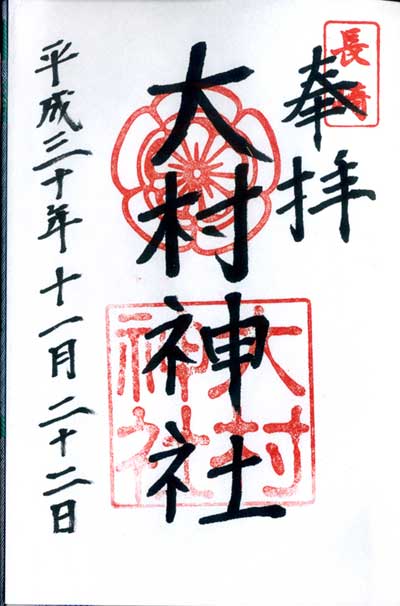 長崎
奉拝
大村神社
大村
神社
平成三十年十一月二十二日